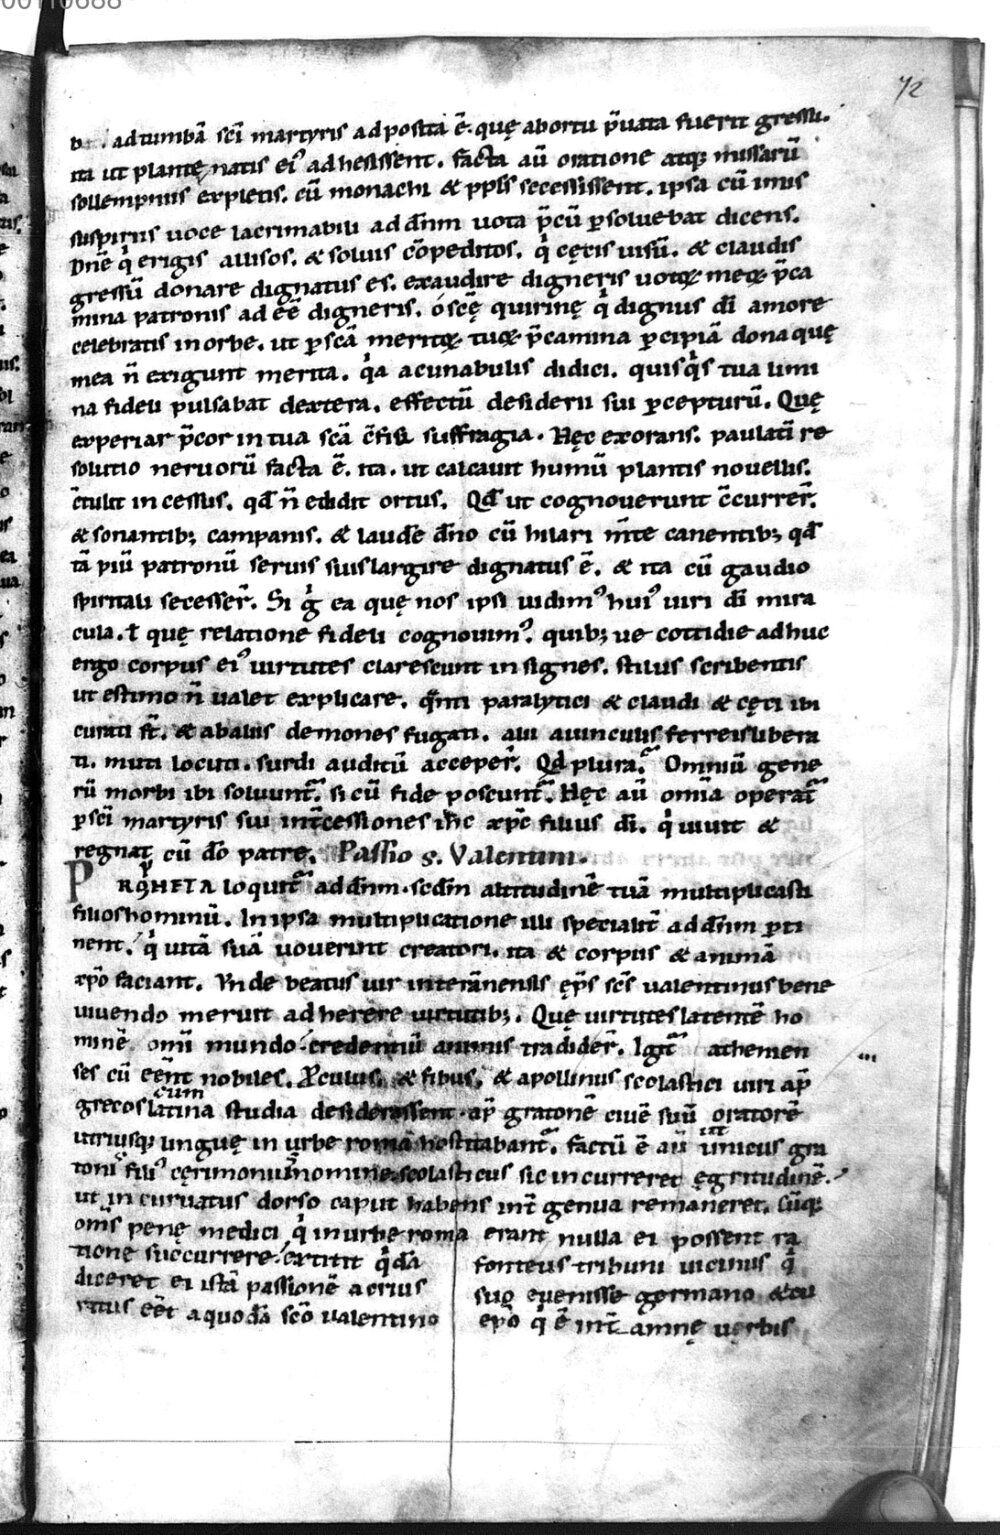 00110688
72
adtumbā sc̄i martyris adposita ē. quę abortu p̄uata fuerit gressu.
ita ut plantę natis ei᾽ adhesissent. facta aū oratione atq; missarū
sollempniis expletis. cū monachi & pp̄lis secessissent. ipsa cū imis
suspiriis uoce lacrimabili ad dn̄m uota p̄cū ꝑsoluebat dicens.
Dn̄e q̇ erigis allisos. & soluis cōpeditos. q̇ cęcis uisū. & claudis
gressū donare dignatus es. exaudire digneris uotęꝝ meęꝝ p̄ca
mina patronis ad eē digneris. ó sc̄ę quirinę q̇ dignus dī amore
celebratis in orbe. ut ꝑ sc̄a meritoꝝ tuoꝝ p̄camina ꝑcipiā dona quę
mea n̄ exigunt merita. q̇a acunabulis didici. quisq̇s tua limi
na fideli pulsabat dextera. effectū desiderii sui ꝑcepturū. Quę
experiar p̄cor in tua sc̄a c̄fisi suffragia. Hęc exorans. paulatī re
solutio neruorū facta ē. ita. ut calcauit humū plantis nouellis.
c̄tulit incessus. qđ n̄ edidit ortus. Qđ ut cognouerunt c̄currer̄.
& sonantib; campanis. & laude dn̄o cū hilari m̄te canentib; qđ
tā piū patronū seruis suis largire dignatus ē. & ita cū gaudio
spiritali secesser̄. Si g̊ ea quę nos ipsi uidim᾽ hui᾽ uiri dī mira
cula. ł quę relatione fideli cognouim᾽. quib; ue cottidie adhuc
ergo corpus ei᾽ uirtutes clarescunt insignes. stilus scribentis
ut estimo n̄ ualet explicare. q̄nti paralytici & claudi & cęci ibi
curati st̄. & abaliis demones fugati. alii auinculis ferreis libera
ti. muti locuti. surdi auditū acceper̄. Qđ plura. Omniū gene
rū morbi ibi soluunt᷑. si cū fide poscunt᷑. Hęc aū om̄ia operat᷑
ꝑ sc̄i martyris sui int̄cessiones ih̄c xp̄c filius dī. q̇ uiuit &
regnat cū do̅ patre. Passio s. Valentini.
PROPHETA loquit᷑ ad dn̄m. scd̄m altitudinē tuā multiplicasti
filios hominū. In ipsa multiplicatione illi specialit̄ ad dn̄m ꝑti
nent. q̇ uitā suā uouerint creatori. ita & corpus & animā
xp̄o faciant. Vnde beatus uir interānensis ęp̄s sc̄s ualentinus bene
uiuendo meruit adherere uirtutib;. Quę uirtutes latentē ho
minē omī mundo credentiū animis tradider̄. Igit᷑ athenien
ses cū eēnt nobiles. ꝓculus. & fibus. & apollinus scolastici uiri ap̄
grecos cum latina studia desiderassent ap̄ gratonē ciuē suū oratorē
utriusq; linguę in urbe roma hospitabant᷑. factū ē aū ut unicus gra
toni᾽ fili᾽ cęrimonius nomine scolasticus sic incurreret ęgritudinē.
ut incuruatus dorso caput habens int̄ genua remaneret. Cūq;
om̄s penę medici q̇ in urbe roma erant nulla ei possent ra
tione succurrere. extitit q̇dā fonteus tribuni uicinus q̇
diceret ei istā passionē acrius suo euenisse germano & cu
ratus eēt aquodā sc̄o ualentino ep̄o q̇ ē int̄ amnę uęrbis